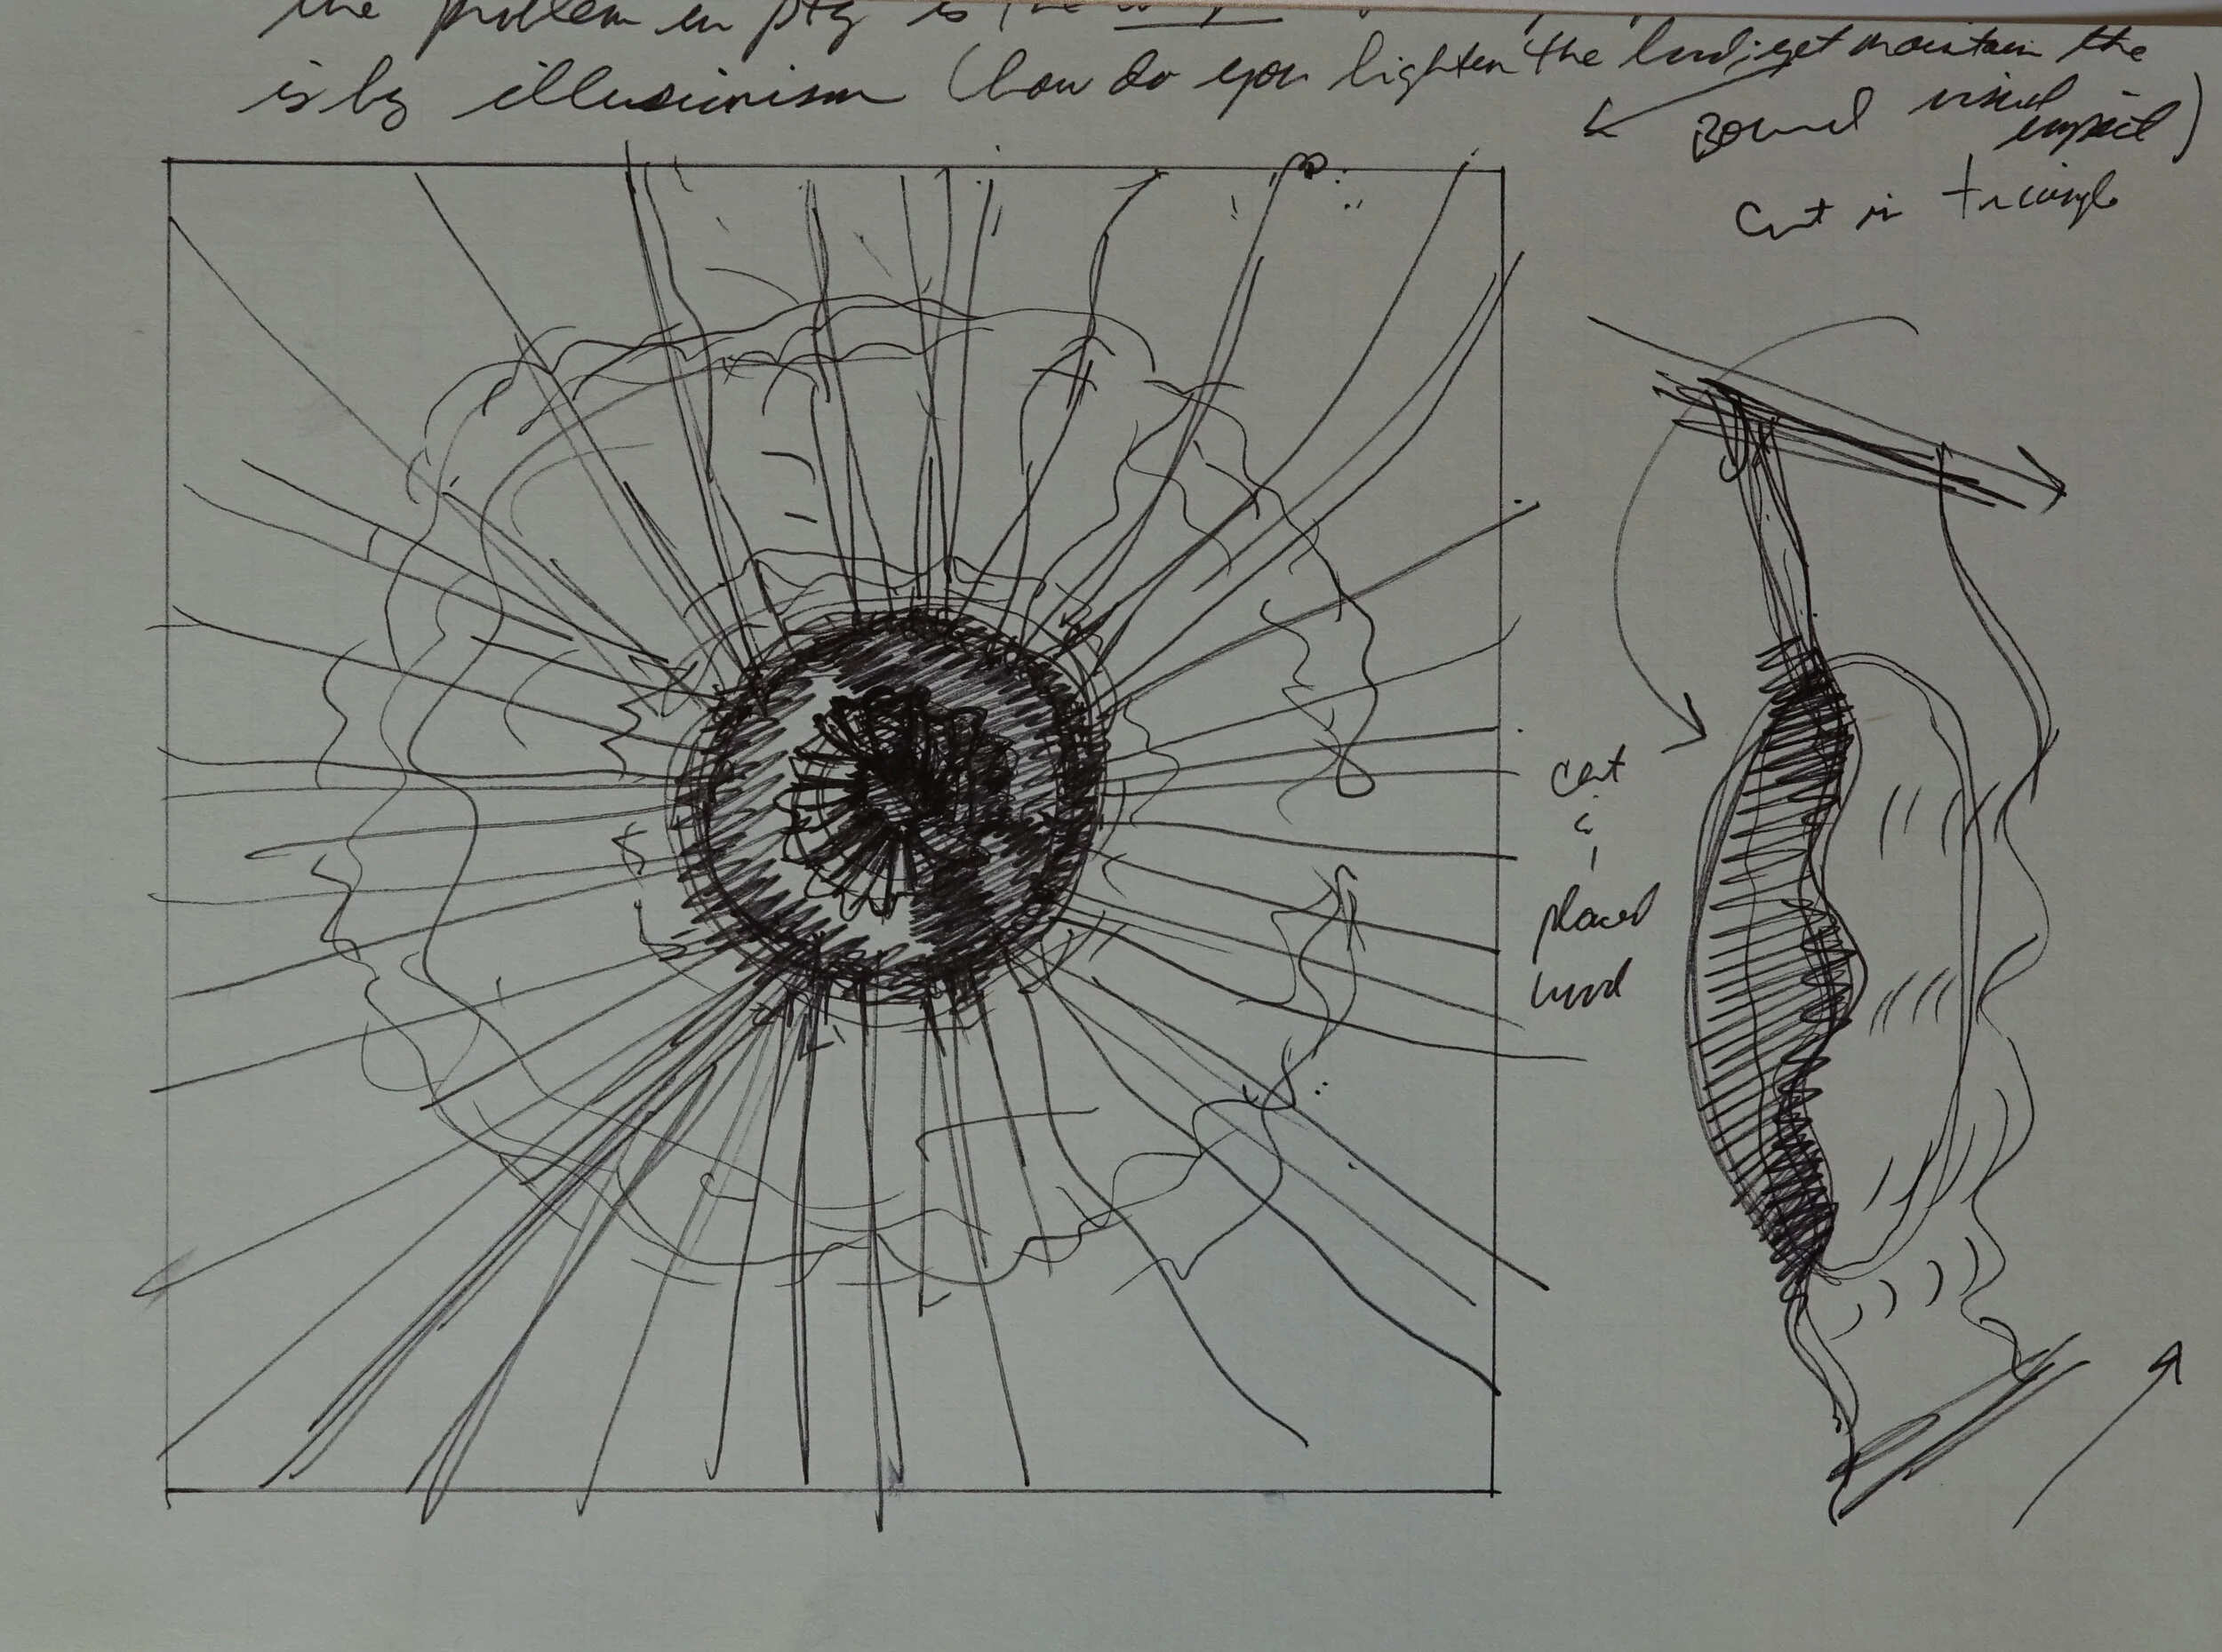 the problem in ptg is the
is by illusionism (how do you lighten the load; yet maintain the
visual
impact)
round
cut in triangle
cut
&
placed
wood